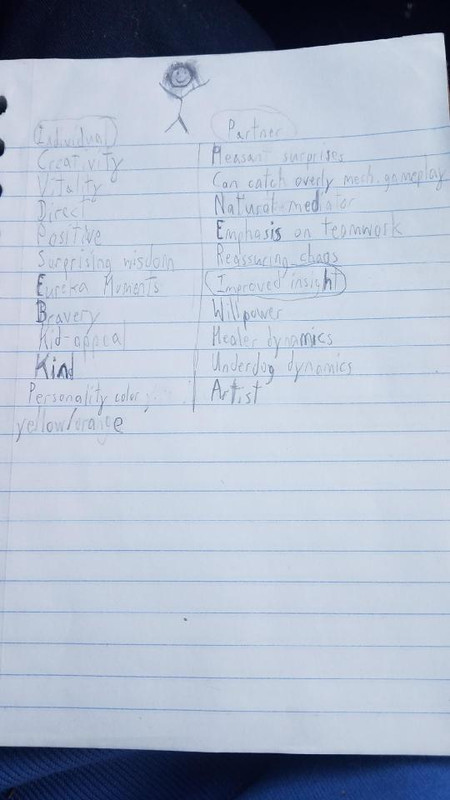 Individual
Creativity
Vitality
Direct
Positive
Surprising wisdom
Eureka Moments
Bravery
Kid-appeal
Kind
Personality color:
yellow/orange
Partner
Pleasant surprises
Can catch overly mech. gameplay
Natural mediator
Emphasis on teamwork
Reassuring chaos
Improved insight
Willpower
Healer dynamics
Underdog dynamics
Artist